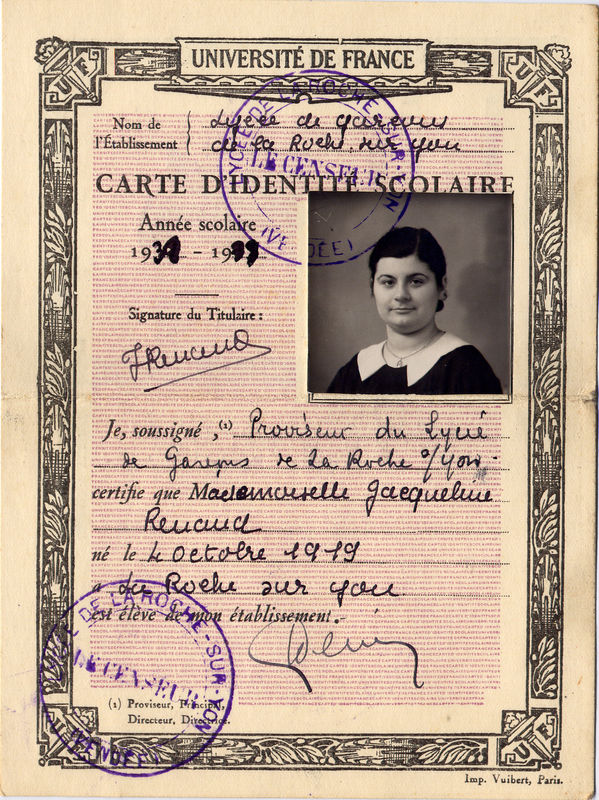 UNIVERSITÉ DE FRANCE
UF UF
Nom de l'Établissement
Lycée de garçons
de la Roche sur yon
LYCÉE DE LA ROCHE-SUR-YON
LE CENSEUR
(VENDÉE)
CARTE D'IDENTITÉ SCOLAIRE
Année scolaire
1938 - 1939
Signature du Titulaire :
JRenaud
Je, soussigné, (1) Proviseur du Lycée
de Garçons de La Roche s/yon
certifie que Mademoiselle Jacqueline
Renaud
né le 4 Octobre 1919
à La Roche sur yon
est élève de mon établissement.
LYCÉE DE LA ROCHE-SUR-YON
LE CENSEUR
(VENDÉE)
(1) Proviseur, Principal,
Directeur, Directrice.
UF UF
Imp. Vuibert, Paris.